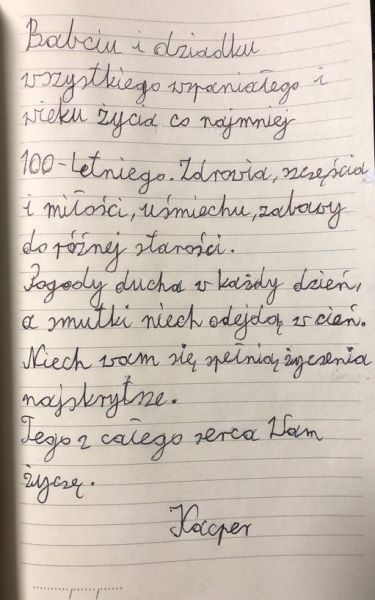 Babciu i dziadku
wszystkiego wspaniałego i
wieku życia co najmniej
100-letniego. Zdrowia, szczęścia
i miłości, uśmiechu, zabawy
do różnej starości.
Pogody ducha w każdy dzień,
a smutki niech odejdą w cień.
Niech wam się spełnią życzenia
najskrytsze.
Tego z całego serca Wam
życzę.
Kacper